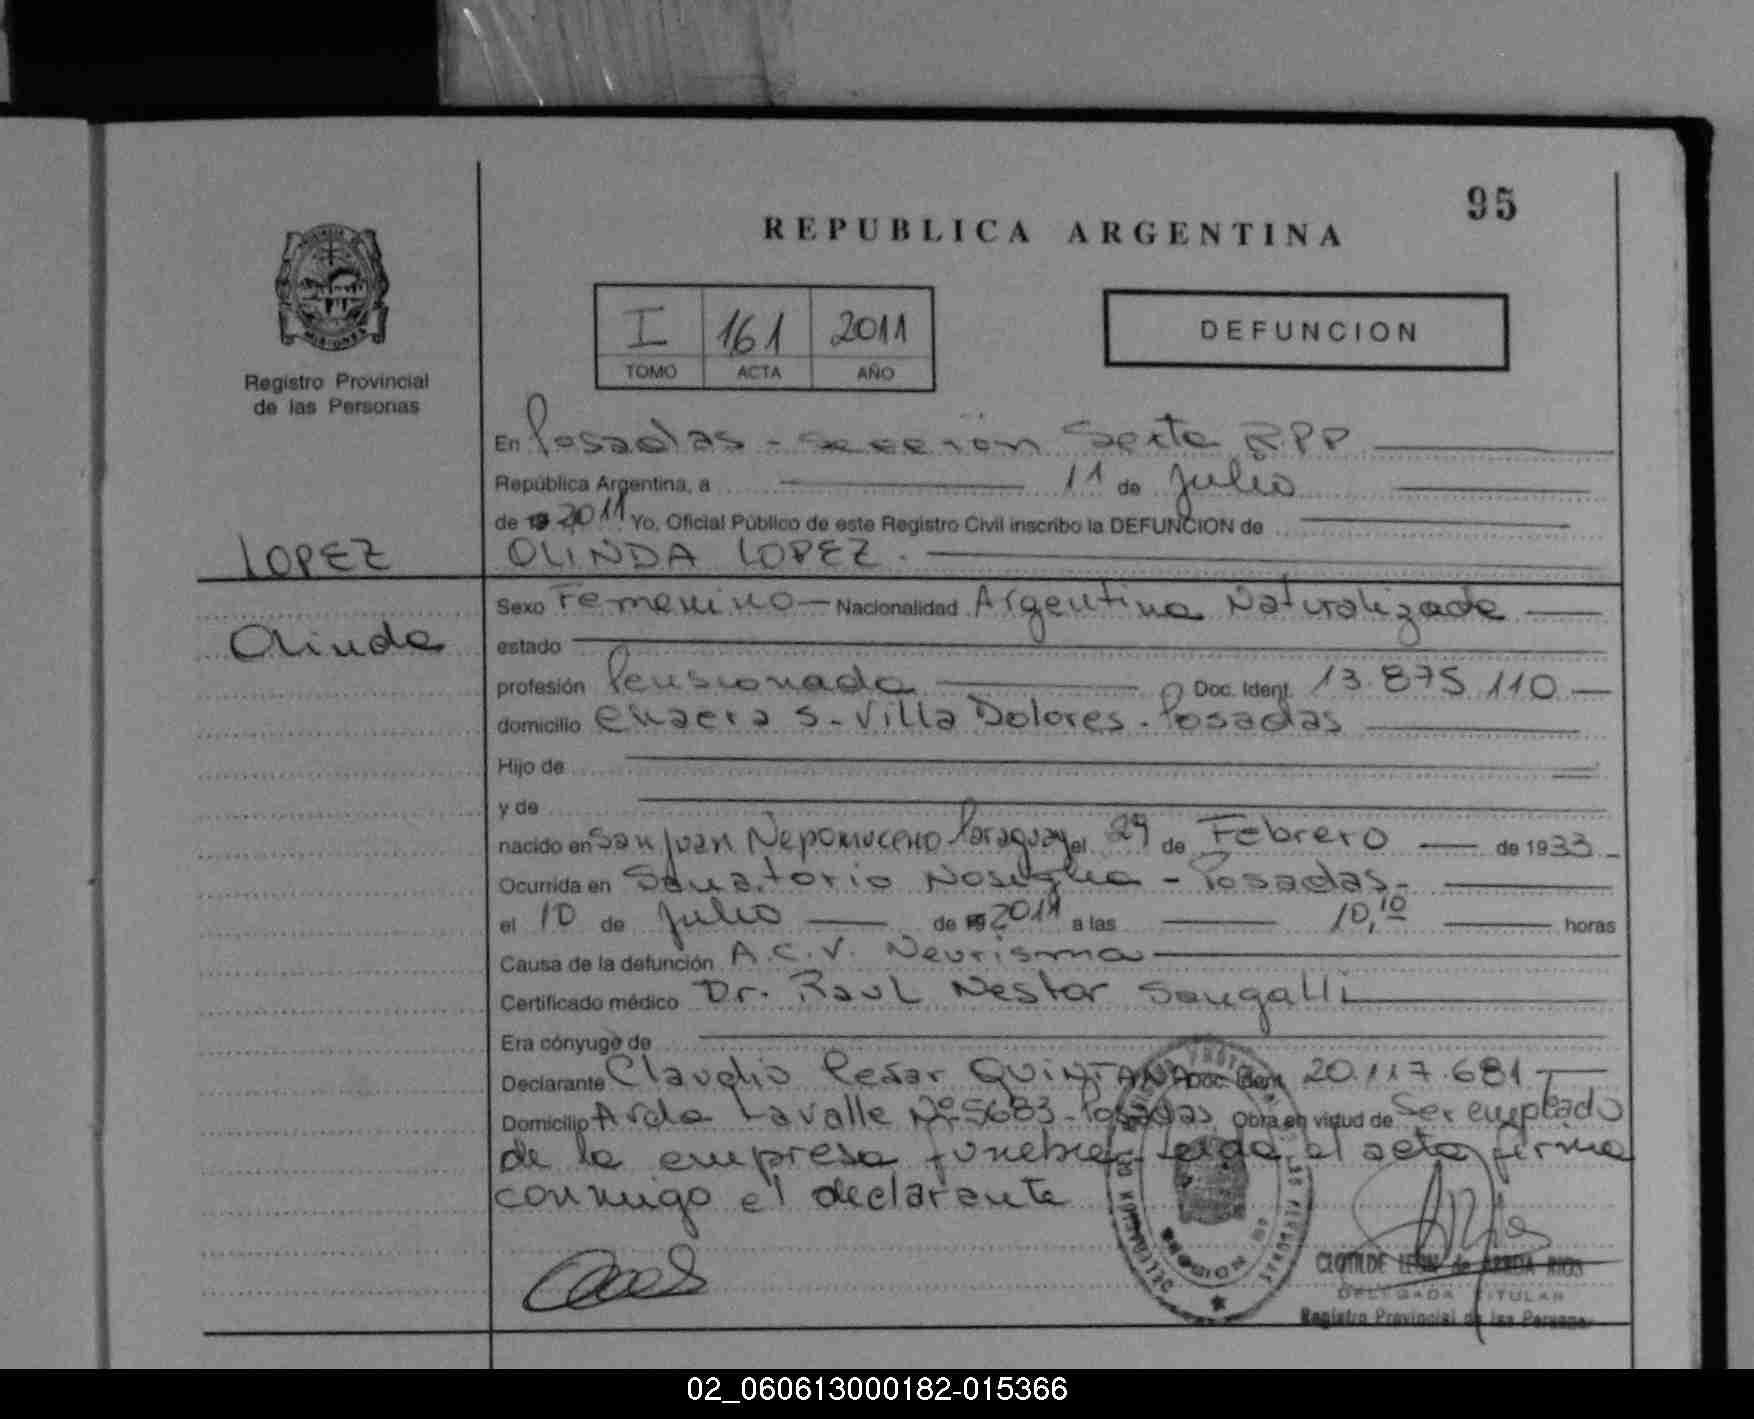 95
REPUBLICA ARGENTINA
MISIONES
Registro Provincial
de las Personas
I 161 2011
TOMO ACTA AÑO
DEFUNCION
En Posadas - sección Sexta R.P.P
República Argentina, a 11 de Julio
de 19 2011 Yo, Oficial Público de este Registro Civil inscribo la DEFUNCION de
LOPEZ
OLINDA LOPEZ.
Olinda
Sexo Femenino - Nacionalidad Argentina Naturalizada
estado
profesión Pensionada Doc. Ident. 13.875.110
domicilio Chacra S - Villa Dolores - Posadas
Hijo de
y de
nacido en San Juan Nepomuceno Paraguay el 29 de Febrero de 1933
Ocurrida en Sanatorio Nosiglia - Posadas -
el 10 de Julio de 19 2011 a las 10,10 horas
Causa de la defunción A.C.V. Neurisma
Certificado médico Dr. Raul Nestor Sangalli
Era cónyuge de
Declarante Claudio Cesar QUINTANA Doc. Ident. 20.117.681
Domicilio Avda Lavalle Nº 5683 - Posadas Obra en virtud de Ser empleado
de la empresa funebre leida el acta firma
conmigo el declarante
CLOTILDE de RIOS
DELEGADA TITULAR
Registro Provincial de las Personas
02_060613000182-015366